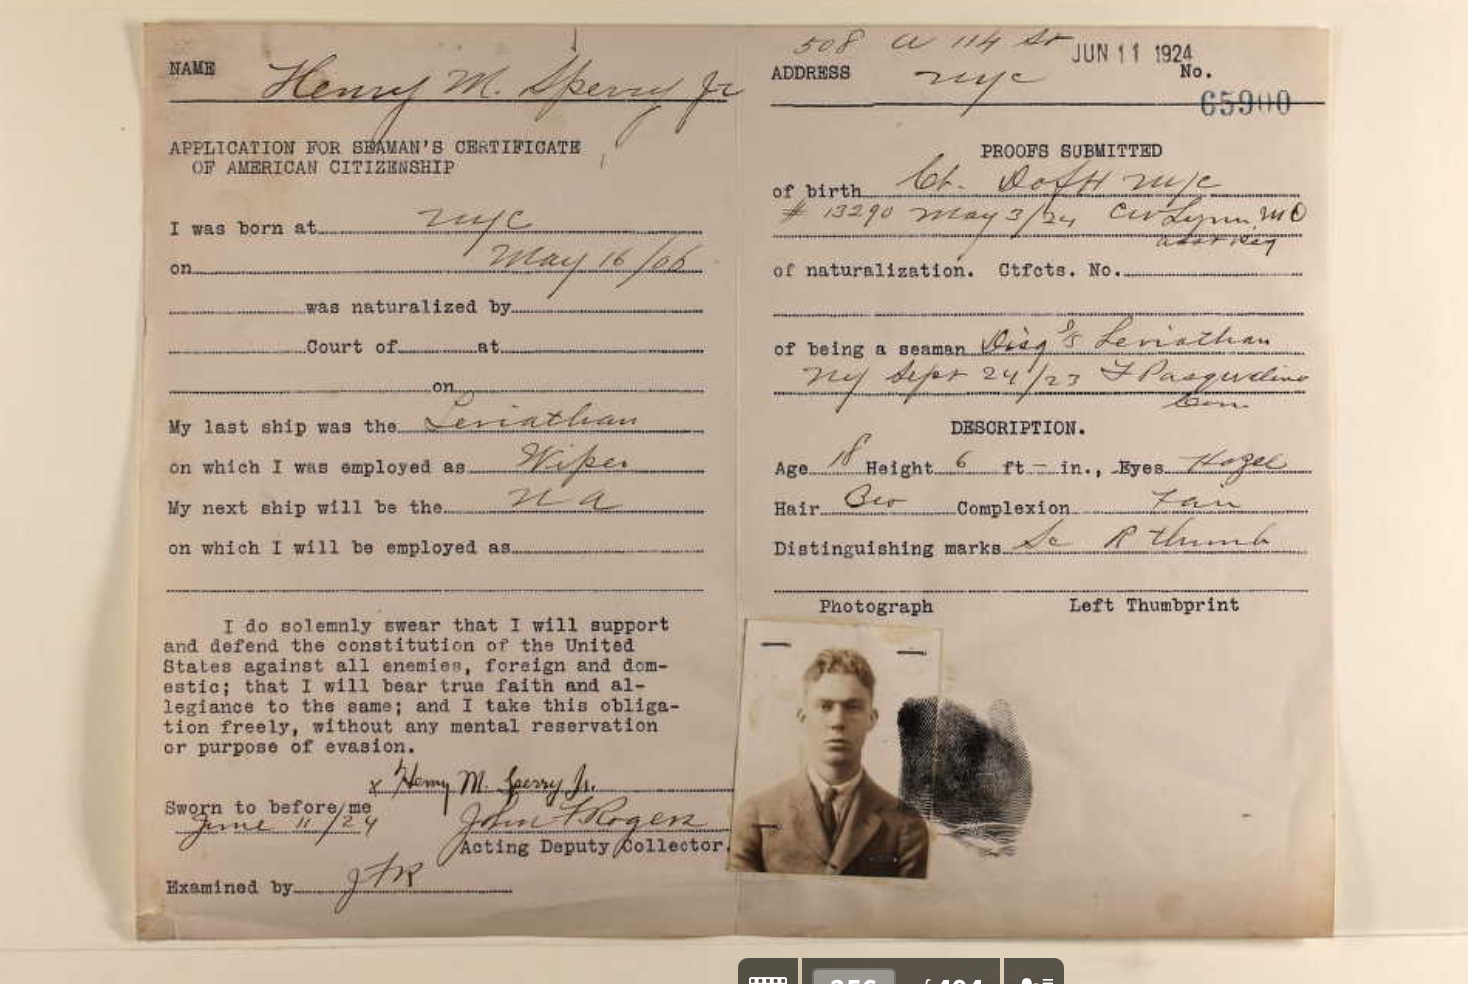 NAME Henry M. Sperry Jr
APPLICATION FOR SEAMAN'S CERTIFICATE
OF AMERICAN CITIZENSHIP
I was born at NYC
on May 16/06
was naturalized by
Court of at
on
My last ship was the Leviathan
on which I was employed as Wiper
My next ship will be the N A
on which I will be employed as
I do solemnly swear that I will support
and defend the constitution of the United
States against all enemies, foreign and dom-
estic; that I will bear true faith and al-
legiance to the same; and I take this obliga-
tion freely, without any mental reservation
or purpose of evasion.
x Henry M. Sperry Jr.
Sworn to before me
June 11/24 John F Rogers
Acting Deputy Collector.
Examined by JFR
508 W 114 St JUN 11 1924
ADDRESS NYC No.
65900
PROOFS SUBMITTED
of birth Ct. D of H NYC
# 13290 May 3/24 CW Lynn MD
asst Reg
of naturalization. Ctfcts. No.
of being a seaman Disg SS Leviathan
NY Sept 24/23 F Pasqueline
Com
DESCRIPTION.
Age 18 Height 6 ft - in., Eyes Hazel
Hair Bro Complexion Fair
Distinguishing marks Sc R thumb
Photograph Left Thumbprint